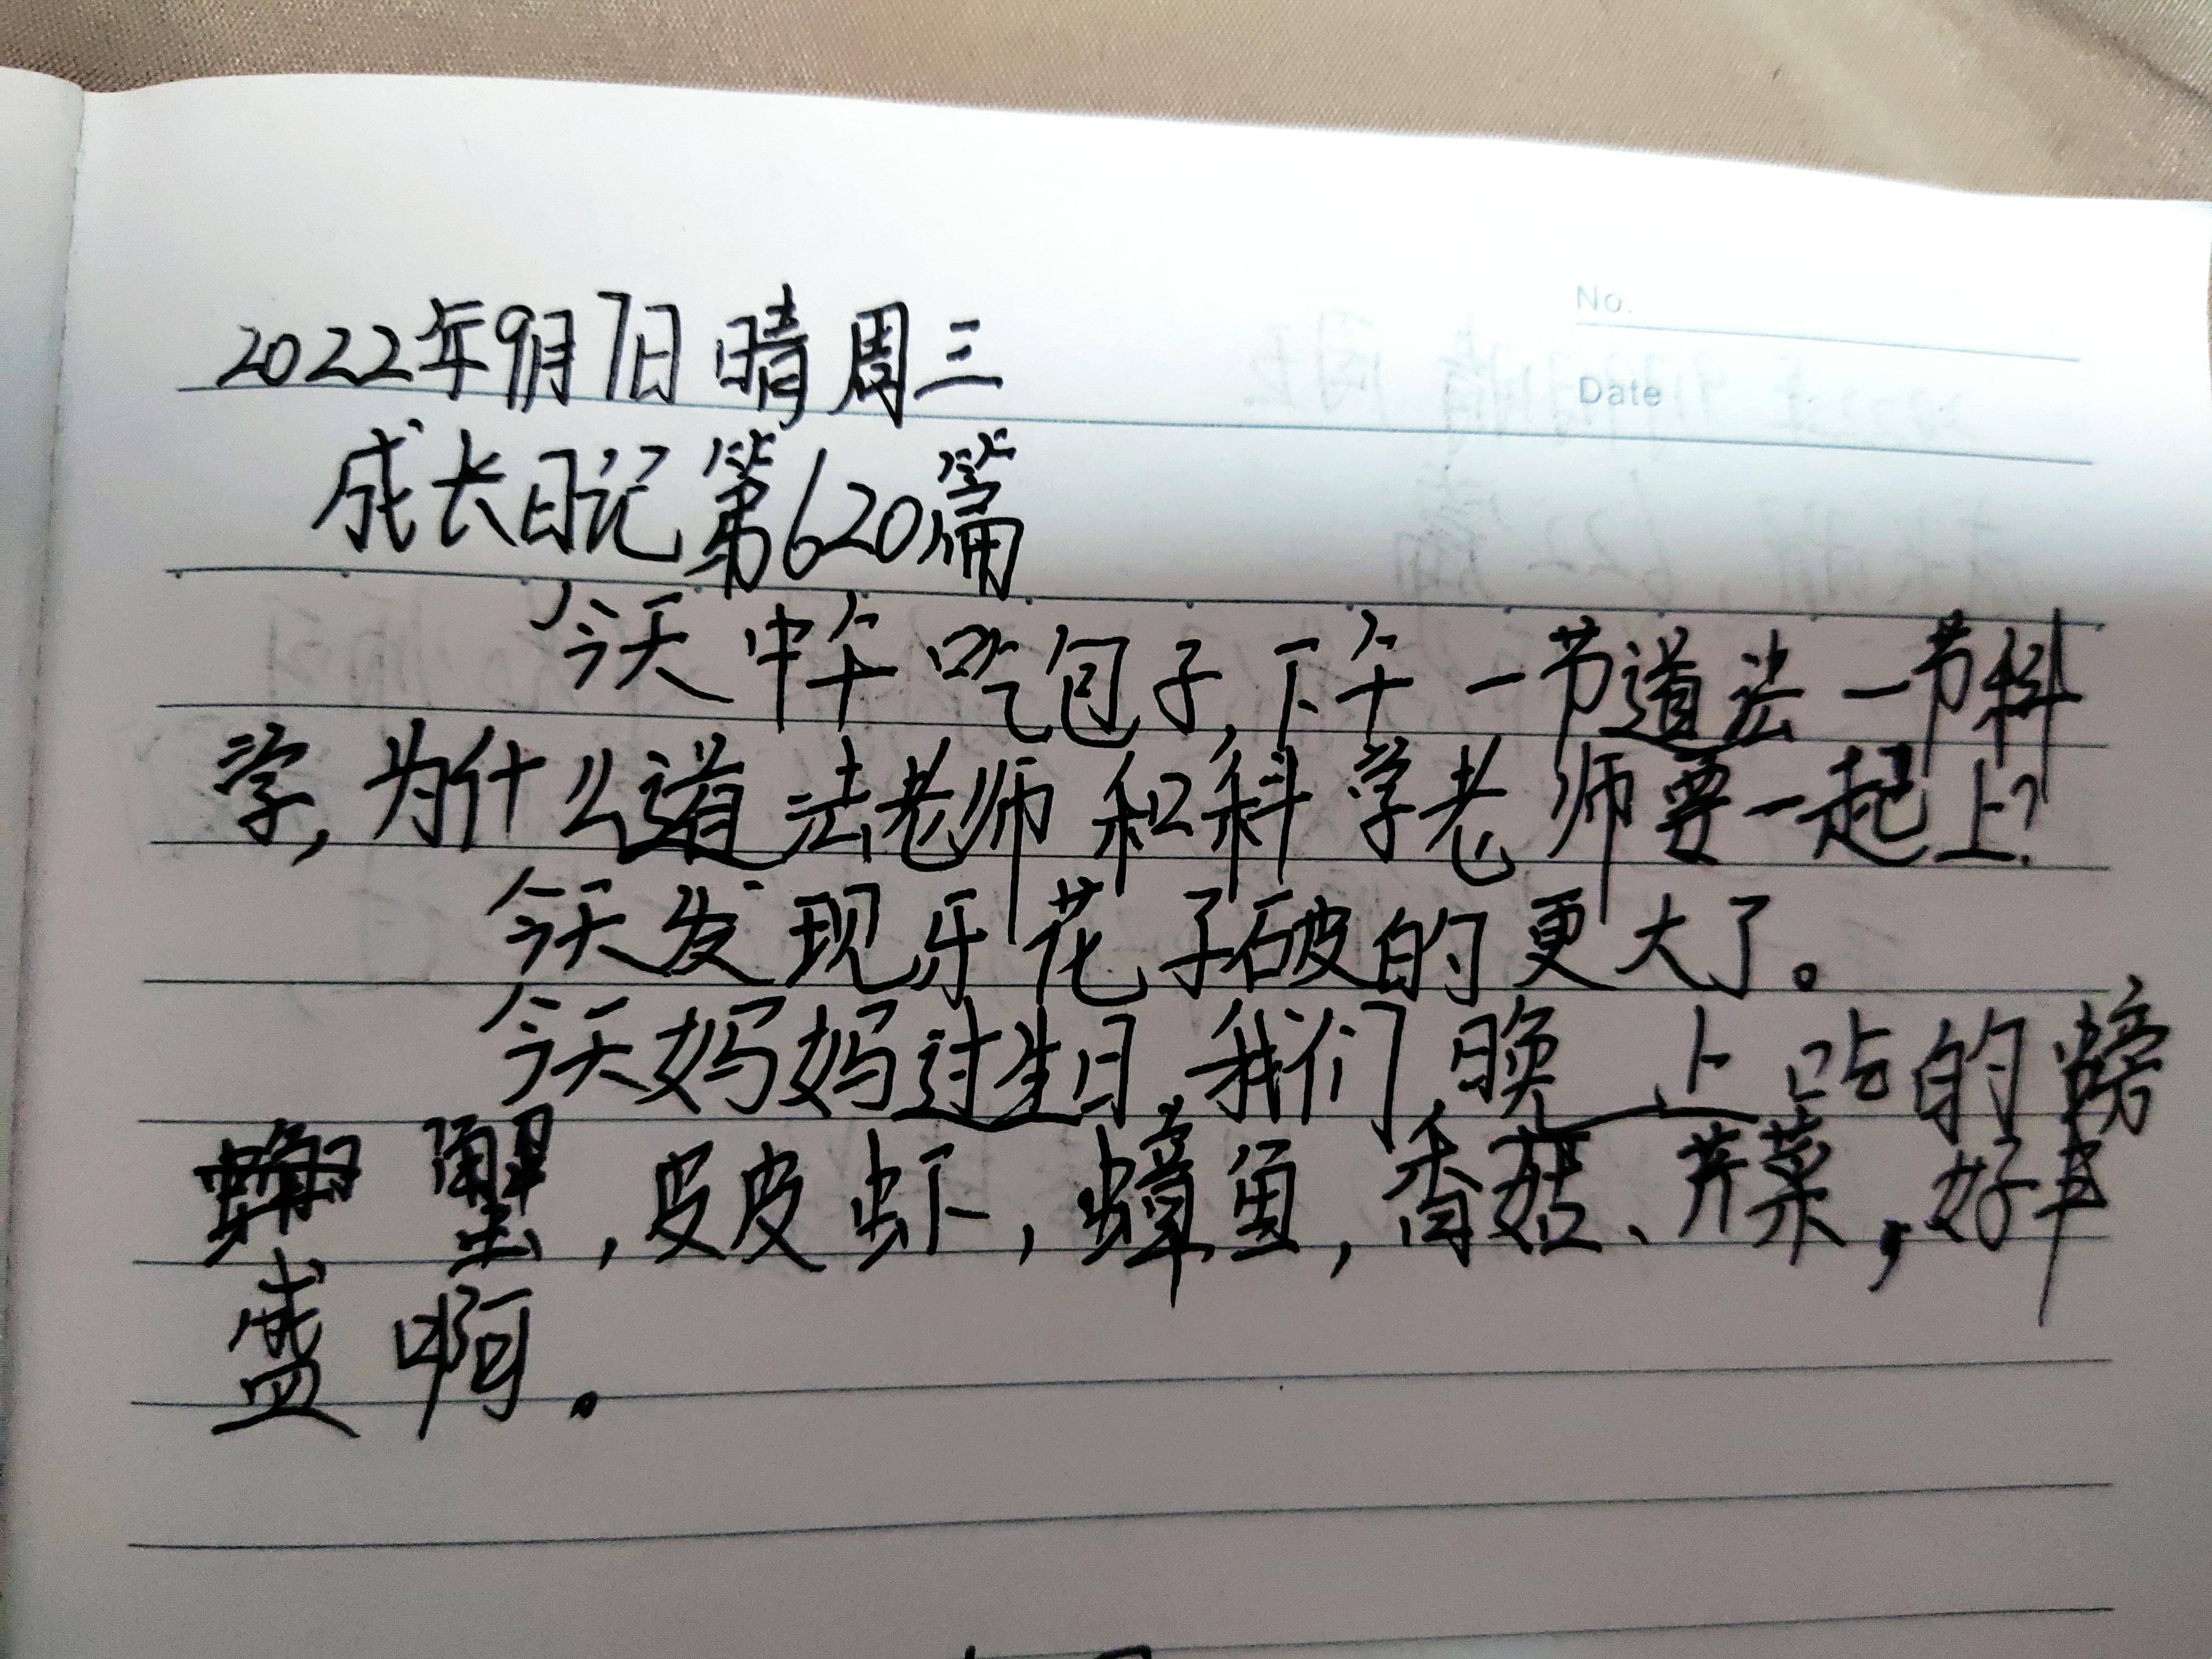 No.
Date
2022年9月7日 晴 周三
成长日记第620篇
今天中午吃包子,下午一节道法一节科
学,为什么道法老师和科学老师要一起上?
今天发现牙花子破的更大了。
今天妈妈过生日,我们晚上吃的螃
蟹,皮皮虾,蟑鱼,香菇、芹菜,好丰
盛啊。